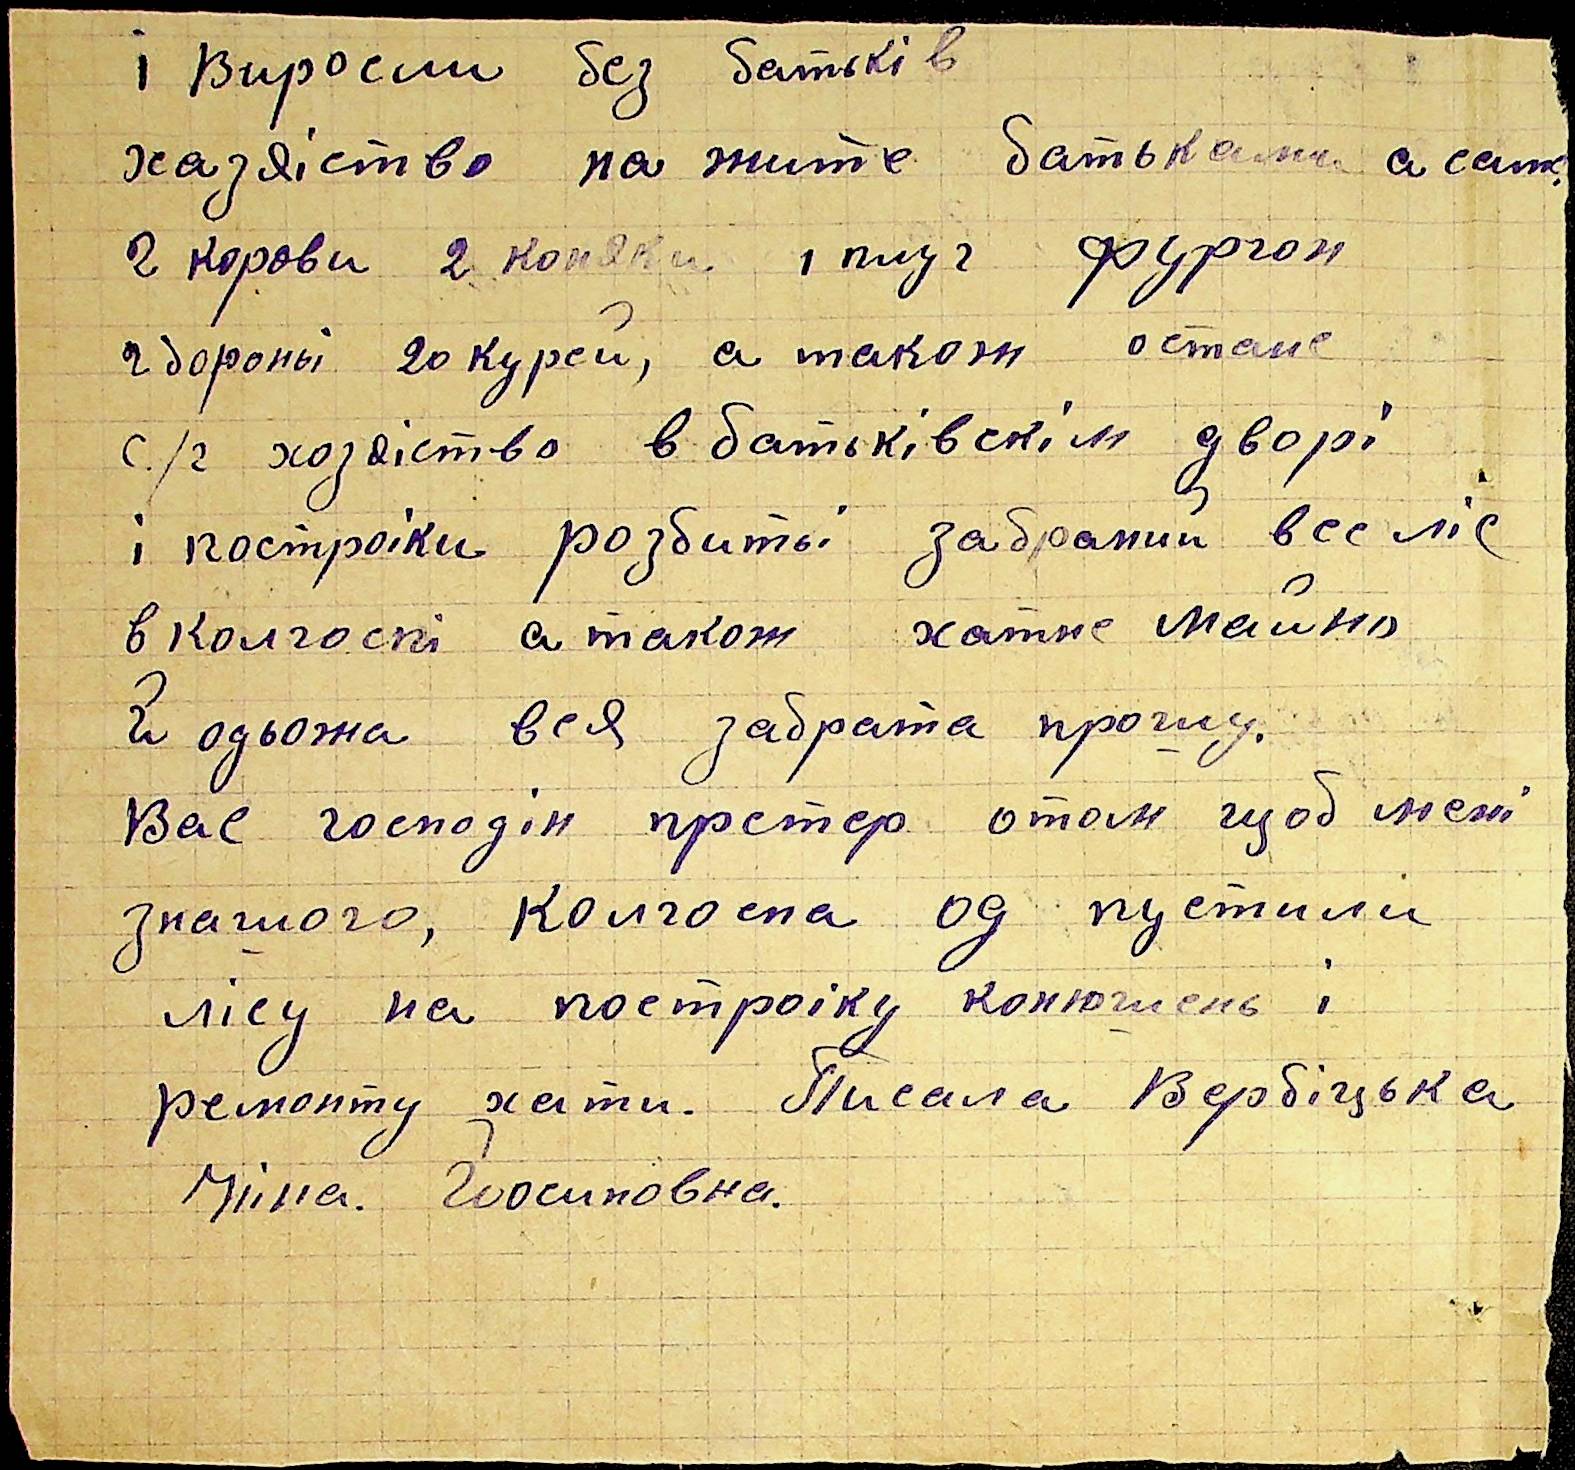 і Виросли без батьків
хазяіство на жите батьками а саме.
2 корови 2 коняки 1 плуг фургон
2 бороні 20 курей, а також остане
с./г хозяіство в батьківскім дворі
і построіки розбиті забраний весь ліс
в колгоспі а також хатнє майно
й одьожа вся забрата прошу.
Вас господін претер отом щоб мені
знашого, колгоспа од пустили
лісу на построіку конюшень і
ремонту хати. Писала Вербіцька
Ніна. Йосиповна.